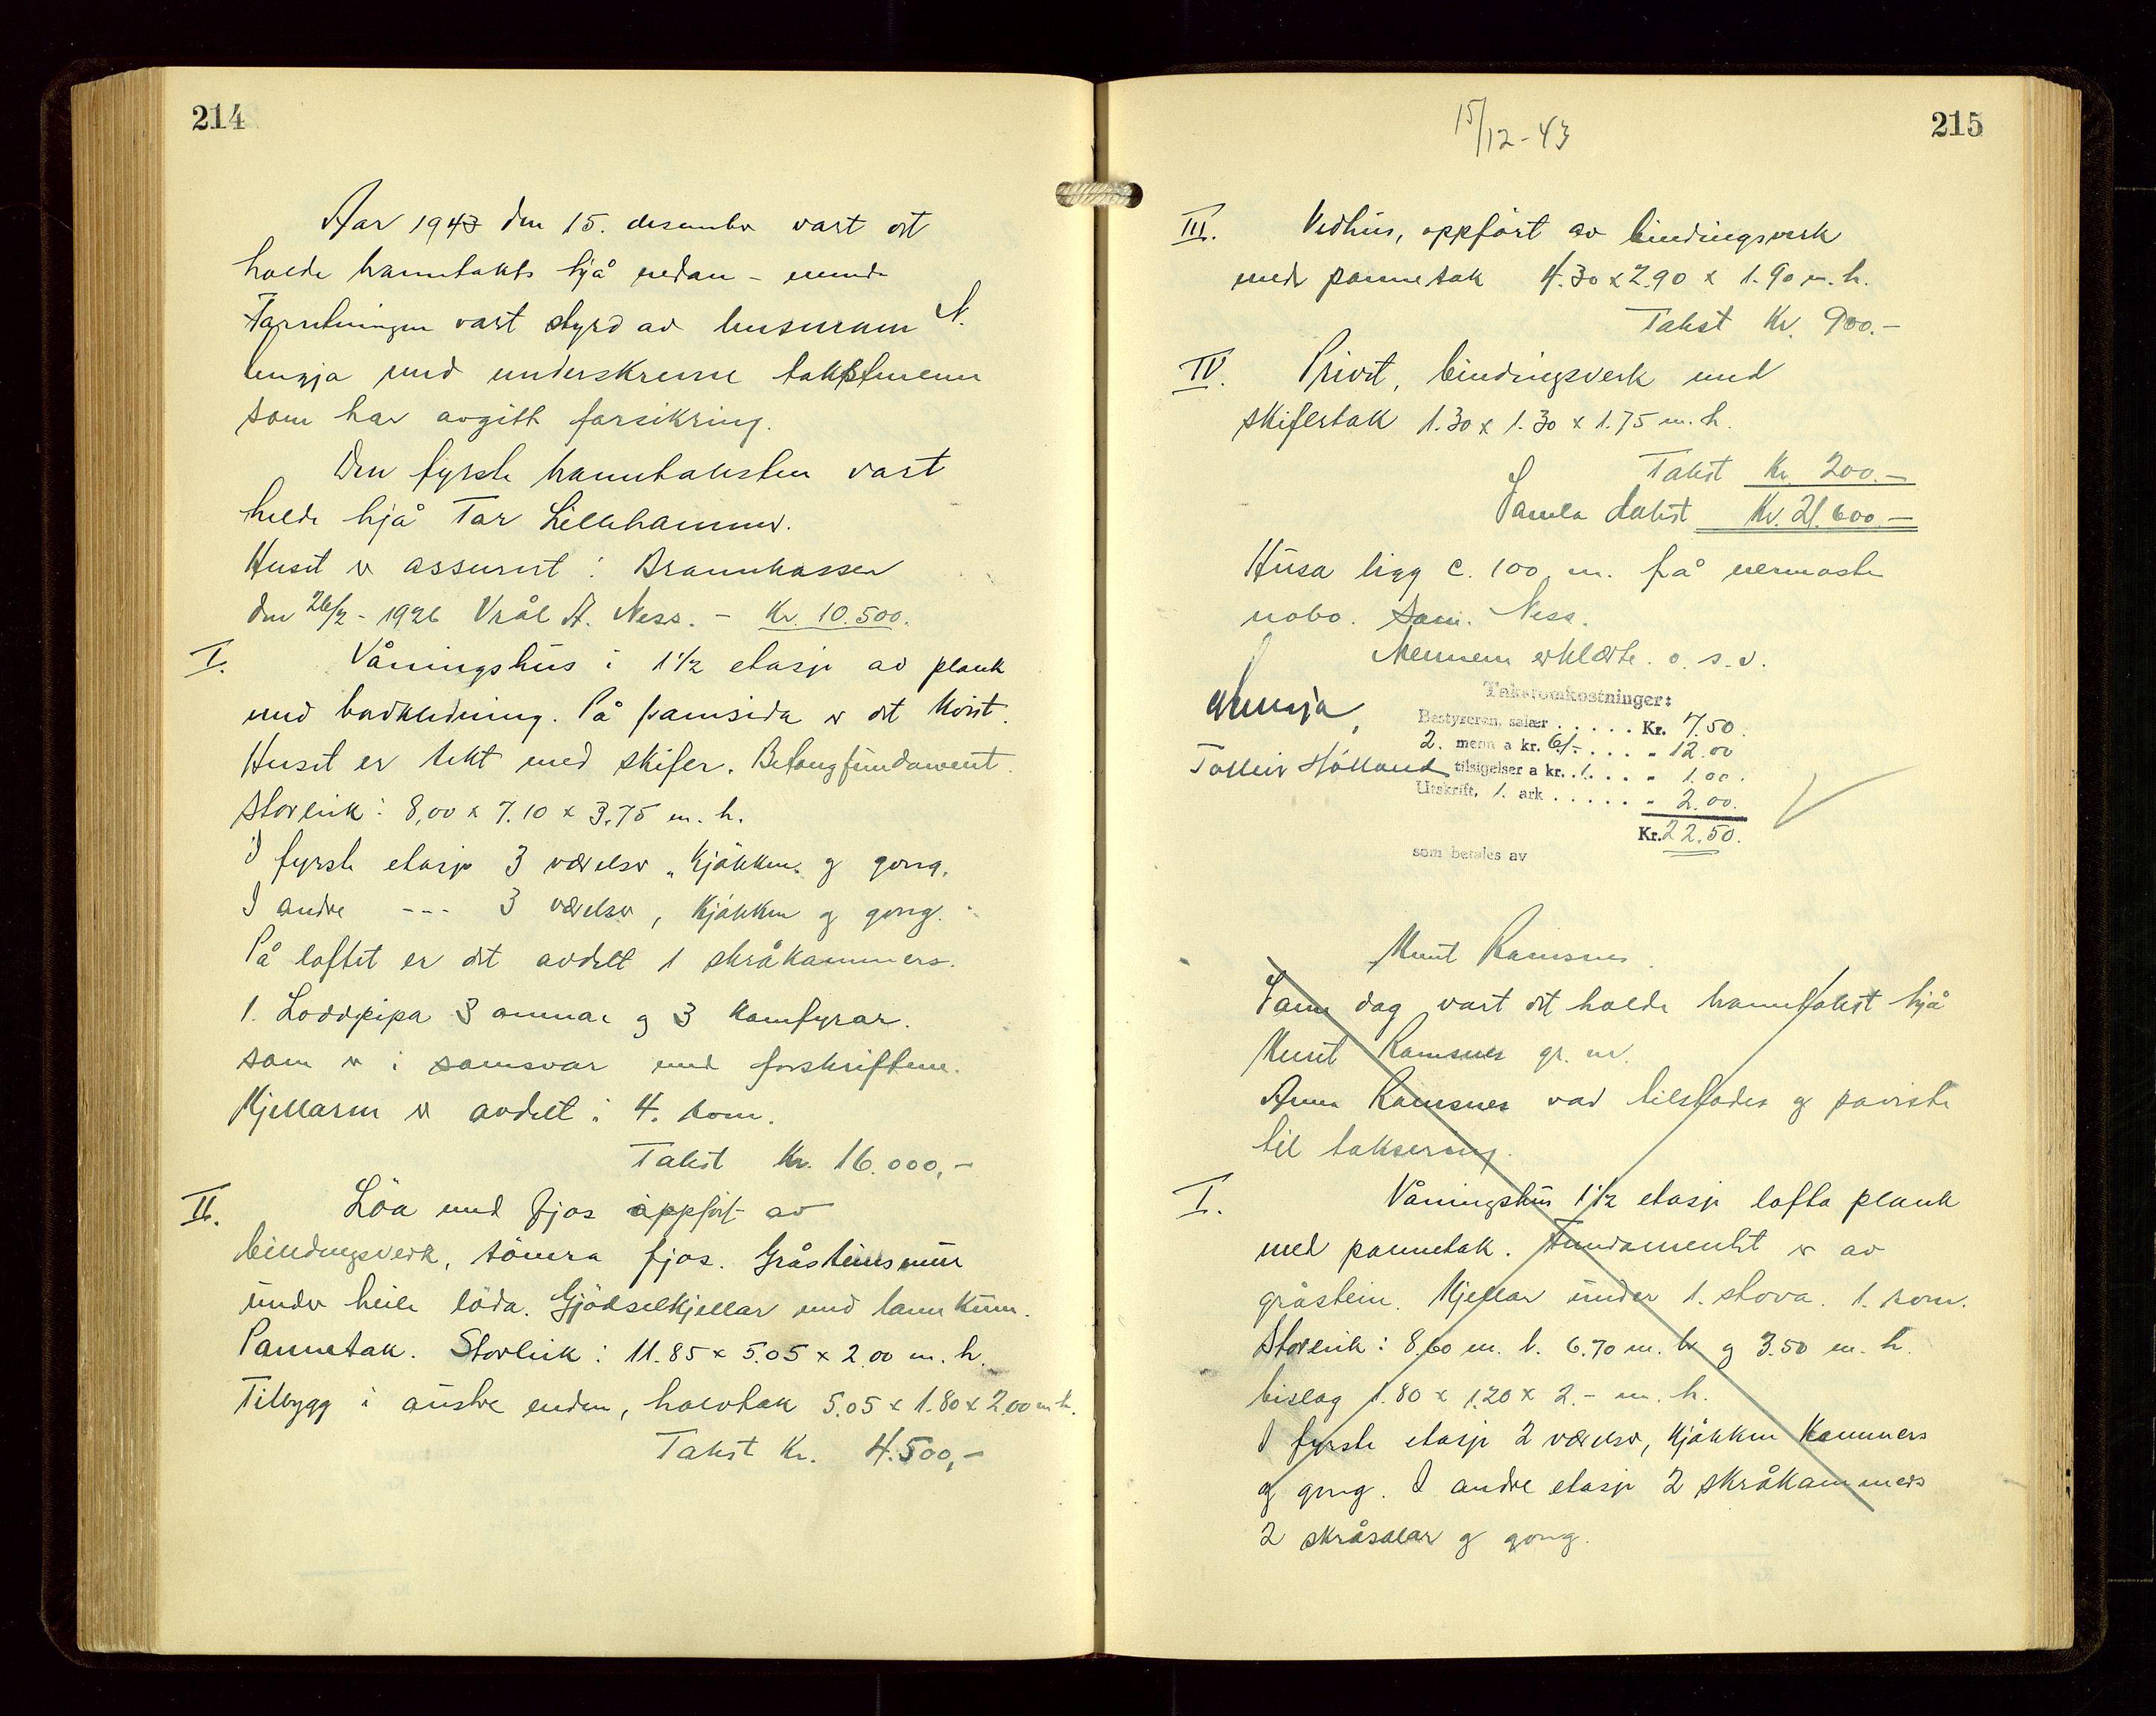 214
Aar 1943 den 15. desember vart det
halde branntakts hjå nedan-nemde
Forretningen vart styrd av lensmann N.
Lungja med underskrevne takstmenn
som har avgitt forsikring.
Den fyrste branntaksten vart
helde hjå Tor Lillehammer.
Huset er assurert i Brannkassen
den 26/2-1926 Vrål A. Ness. - Kr. 10.500.
I. Våningshus i 1 1/2 etasje av plank
med bordkledning. På framsida er det kvist.
Huset er tekt med skifer. Betongfundament.
Storleik: 8,00 x 7.10 x 3.75 m. h.
I fyrste etasje 3 værelser, kjøkken og gong.
I andre --- 3 værelser, kjøkken og gong.
På loftet er det avdelt 1 skråkammers.
1. Loddpipa 3 omnar og 3 komfyrar.
som er i samsvar med forskriftene.
Kjellaren er avdelt i 4. rom.
Takst Kr. 16.000,-
II. Löa med fjos oppført av
bindingsverk, tömra fjos. Gråsteinsmur
under heile löda. Gjödselkjellar med land kum.
Pannetak. Storleik: 11.85 x 5.05 x 2.00 m. h.
Tilbygg i austre enden, halvtak 5.05 x 1.80 x 2.00 m h.
Takst Kr. 4.500,-
15/12-43
215
III. Vedhus, oppført av bindingsverk
med pannetak 4.30 x 2.90 x 1.90 m. h.
Takst Kr. 900.-
IV. Privet, bindingsverk med
skifertak 1.30 x 1.30 x 1.75 m. h.
Takst Kr. 200.-
Samla takst Kr. 21.600.-
Husa ligg c. 100 m. frå nermaste
nabo. Sam. Ness.
Mennene erklærte. o. s. v.
Takstomkostninger:
Bestyreren, salær . . . . . Kr. 7.50.
2. menn a kr. 6/- . . . . " 12.00
Tolleiv Hölland tilsigelser a kr. 1. . . " 1.00.
Utskrift, 1. ark . . . . . " 2.00.
Kr. 22.50.
som betales av
Knut Ramsnes.
Same dag vart det halde branntakst hjå
Knut Ramsnes gr. nr.
Anna Ramsnes var tilstades og påviste
til taksering.
I. Våningshus 1 1/2 etasje lafta plank
med pannetak. Fundamentet er av
gråstein. Kjellar under 1. stova. 1. rom.
Storleik: 8.60 m. l. 6.70 m. br og 3.50 m. h.
bislag 1.80 x 1.20 x 2.- m. h.
I fyrste etasje 2 værelser, kjøkken kammers
og gong. I andre etasje 2 skråkammers
2 skråsalar og gong.